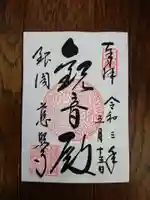 奉拝
令和三年
三月十五日
観音殿
銀閣 慈照寺